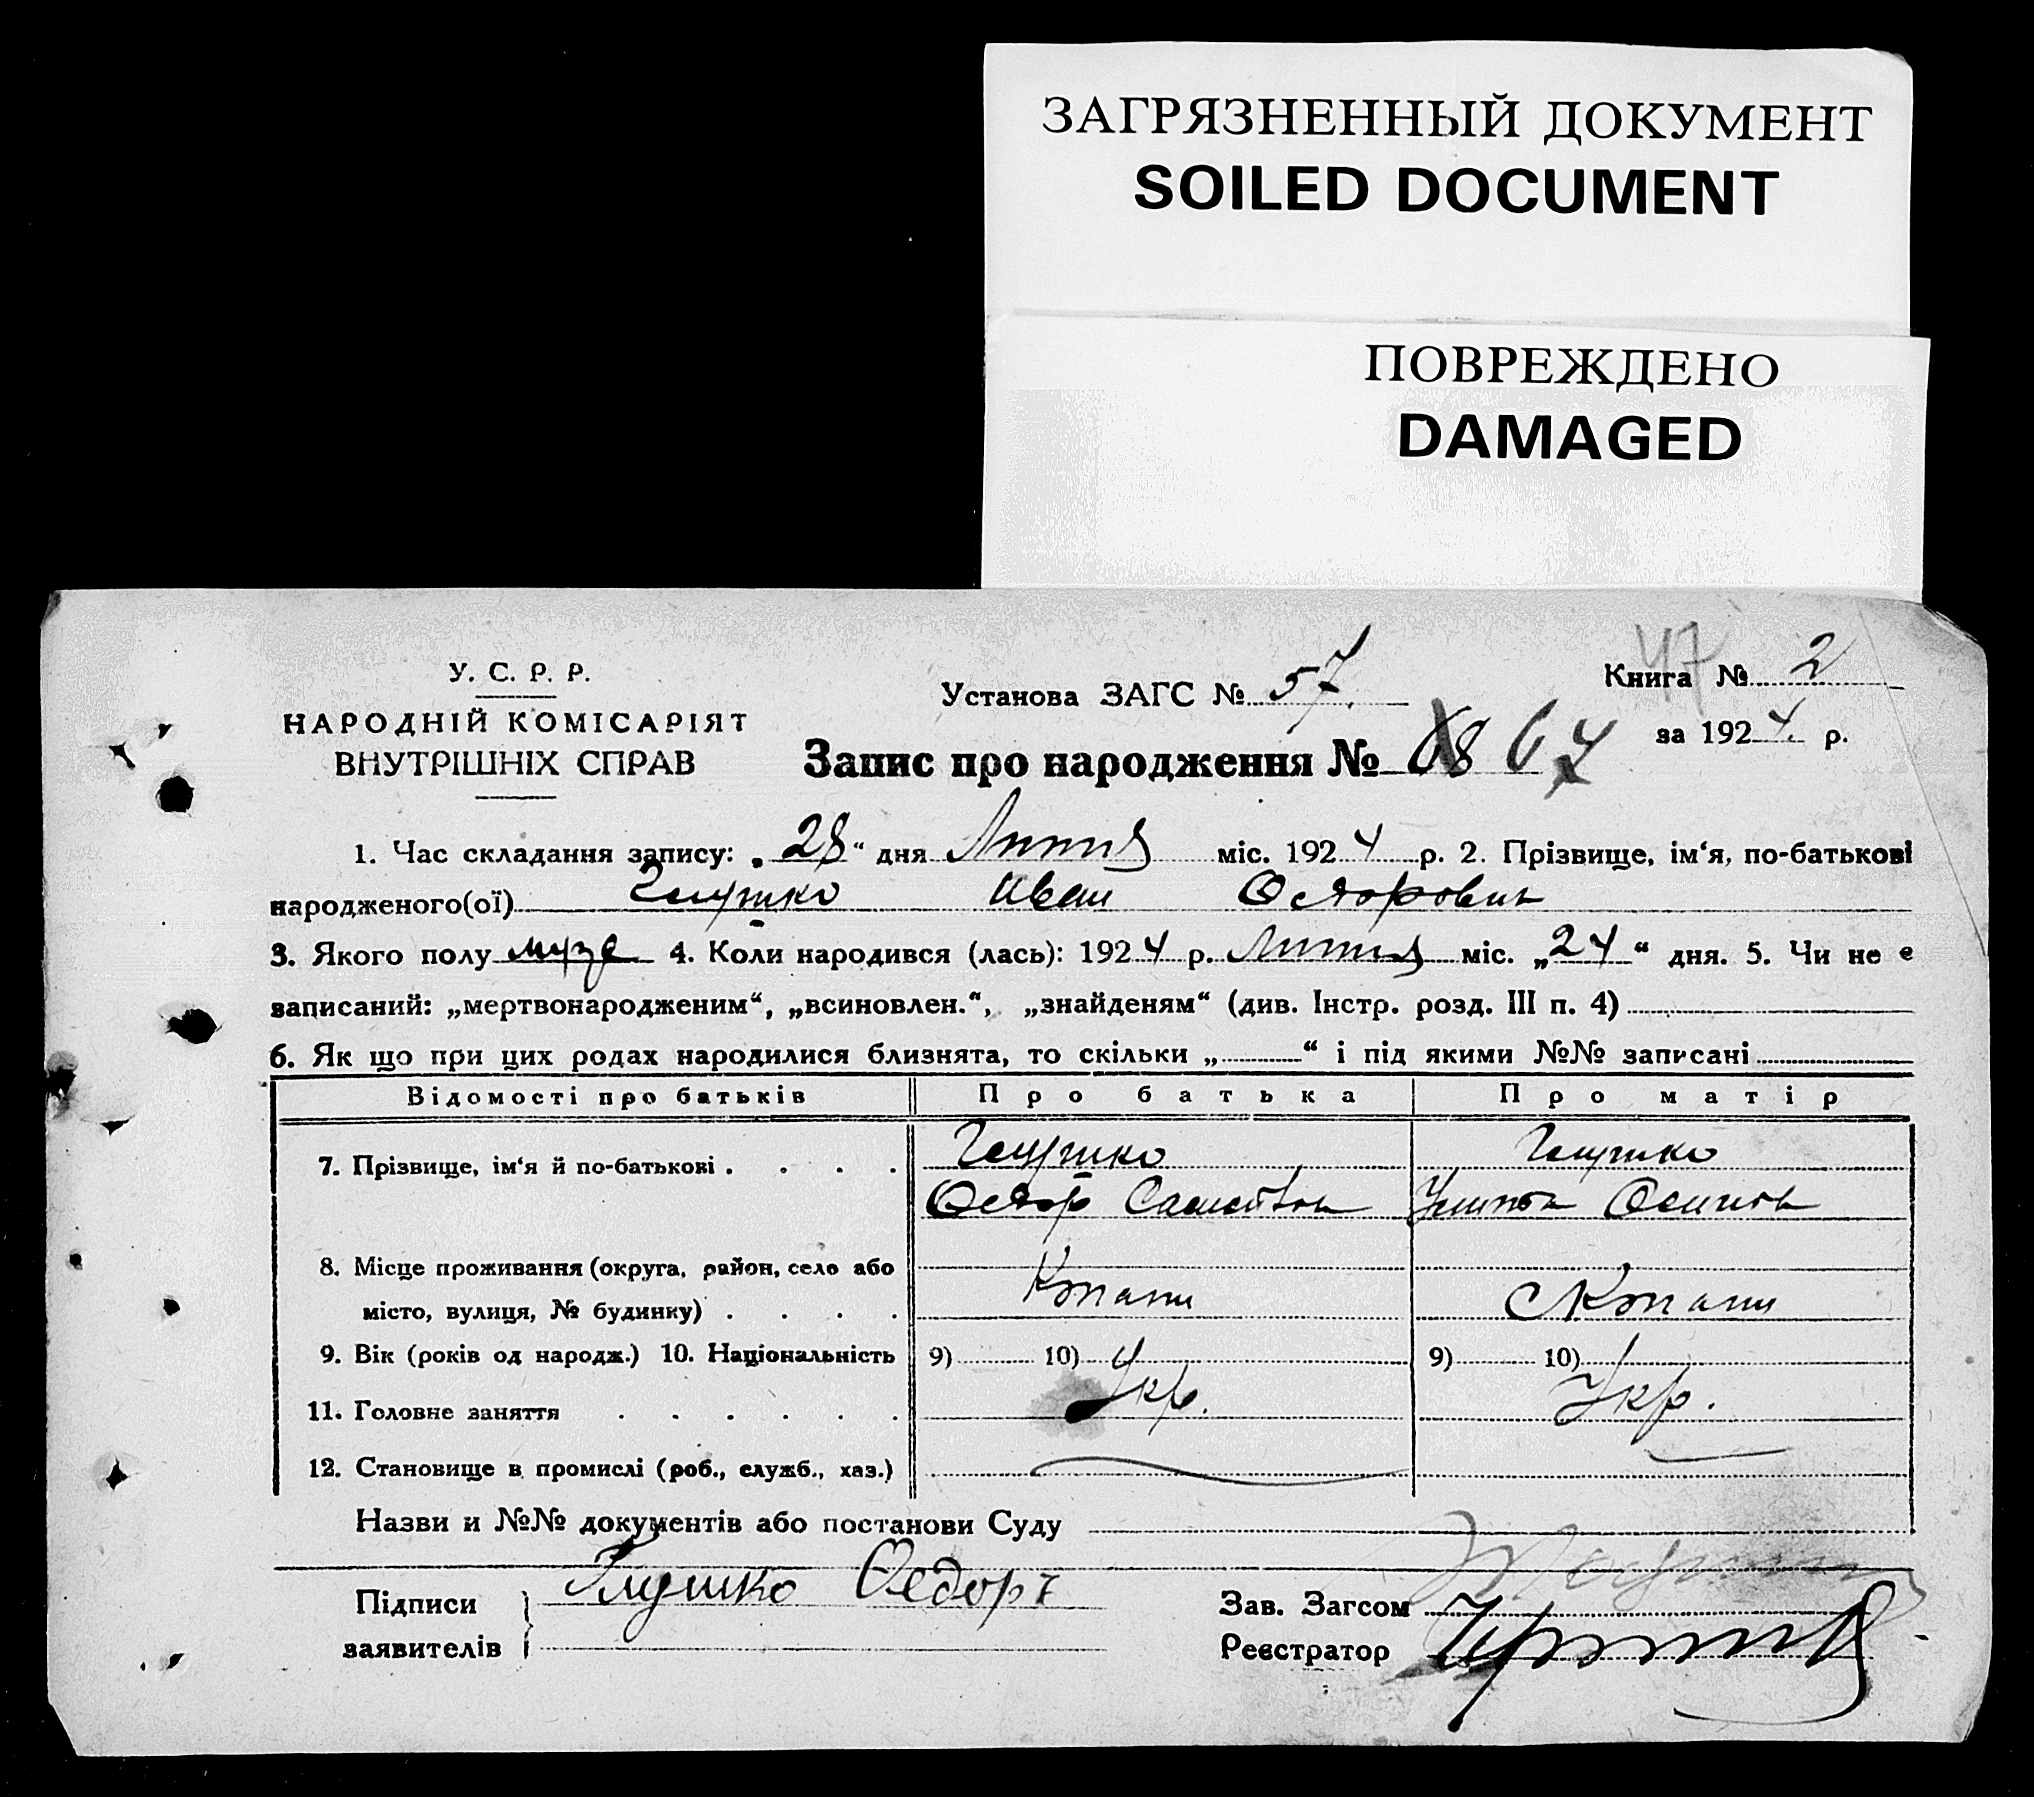 ЗАГРЯЗНЕННЫЙ ДОКУМЕНТ
SOILED DOCUMENT
ПОВРЕЖДЕНО
DAMAGED
47
У. С. Р. Р.
НАРОДНІЙ КОМІСАРІЯТ
ВНУТРІШНІХ СПРАВ
Установа ЗАГС № 57.
Книга № 2
за 1924. р.
Запис про народження № 68 67
1. Час складання запису: „28“ дня Липня міс. 1924 р. 2. Прізвище, ім‘я, по-батькові
народженого(ої) Глушко Иван Федорович
3. Якого полу муже 4. Коли народився (лась): 1924 р. Липня міс. „24“ дня. 5. Чи не є
записаний: „мертвонародженим“, „всиновлен.“, „знайденям“ (див. Інстр. розд. III п. 4)
6. Як що при цих родах народилися близнята, то скільки „ “ і під якими №№ записані
Відомості про батьків Про батька Про матір
7. Прізвище, ім‘я й по-батькові . . . . Глушко Глушко
Федор
8. Місце проживання (округа, район, село або
місто, вулиця, № будинку) . . . . Копани с Копани
9. Вік (років од народж.) 10. Національність 9) 10) Укр. 9) 10) Укр.
11. Головне заняття . . . . . .
12. Становище в промислі (роб., служб., хаз.)
Назви и №№ документів або постанови Суду
Підписи
заявителів
Глушко Федоръ
Зав. Загсом
Реєстратор